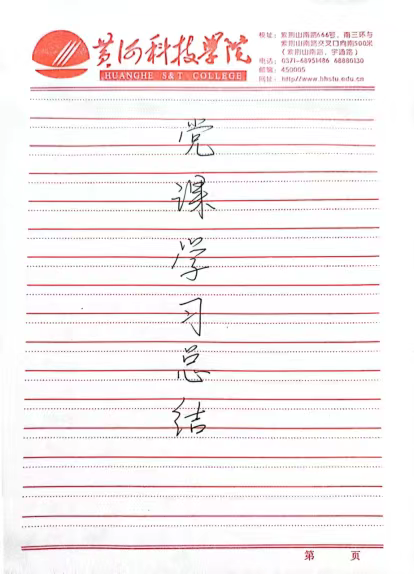 黄河科技学院
HUANGHE S&T COLLEGE
校址：紫荆山南路666号，南三环与
紫荆山南路交叉口向南500米
（紫荆山南路，宇通路）
电话：0371-68951486 68880130
邮编：450005
网址：http://www.hhstu.edu.cn
党
课
学
习
总
结
第 页